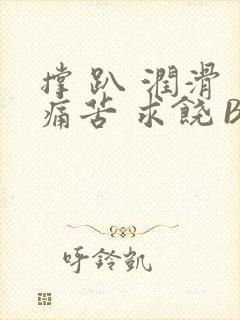 撑 趴 潤滑
痛苦 求饒 B
呼鈴凱